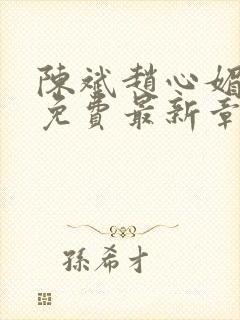 陳斌趙心媚
免費最新章
孫希才